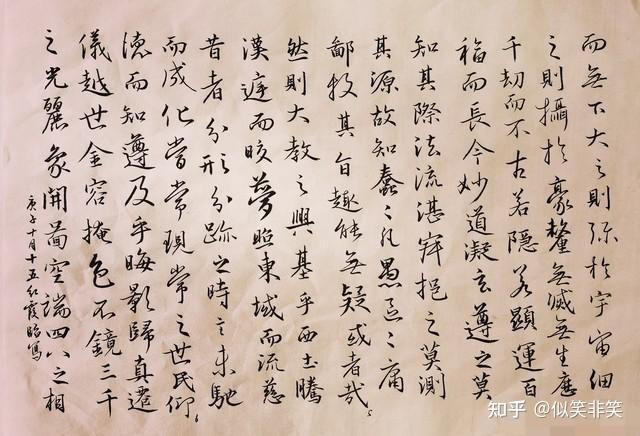 而無下大之則弥於宇宙細
之則攝於豪釐無滅無生歷
千劫而不古若隱若顯運百
福而長今妙道凝玄遵之莫
知其際法流湛寂挹之莫測
其源故知蠢〻凡愚區〻庸
鄙投其旨趣能無疑或者哉
然則大教之興基乎西土騰
漢庭而皎夢照東域而流慈
昔者分形分跡之時言未馳
而成化當常現常之世民仰
德而知遵及乎晦影歸真遷
儀越世金容掩色不鏡三千
之光麗象開圖空端四八之相
庚子十月十五紅霞臨寫
知乎 @似笑非笑